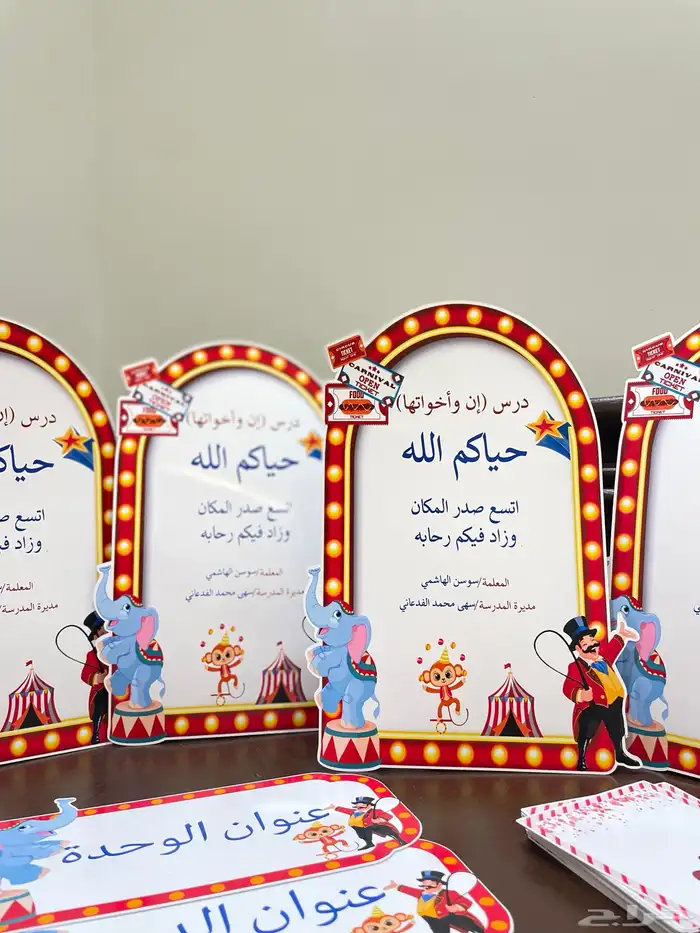 درس (إن
حياك
اتسع ص
وزاد ف
درس (إن وأخواتها)
حياكم الله
اتسع صدر المكان
وزاد فيكم رحابه
المعلمة/سوسن الهاشمي
مديرة المدرسة/سهى محمد الفدعاني
CIRCUS
TICKET
CARNIVAL
OPEN
TICKET
FOOD
TICKET
درس (إن وأخواتها)
حياكم الله
اتسع صدر المكان
وزاد فيكم رحابه
المعلمة/سوسن الهاشمي
مديرة المدرسة/سهى محمد الفدعاني
TICKET
CARNIVAL
OPEN
TICKET
FOOD
TICKET
عنوان الوحدة
عنوان
حراج